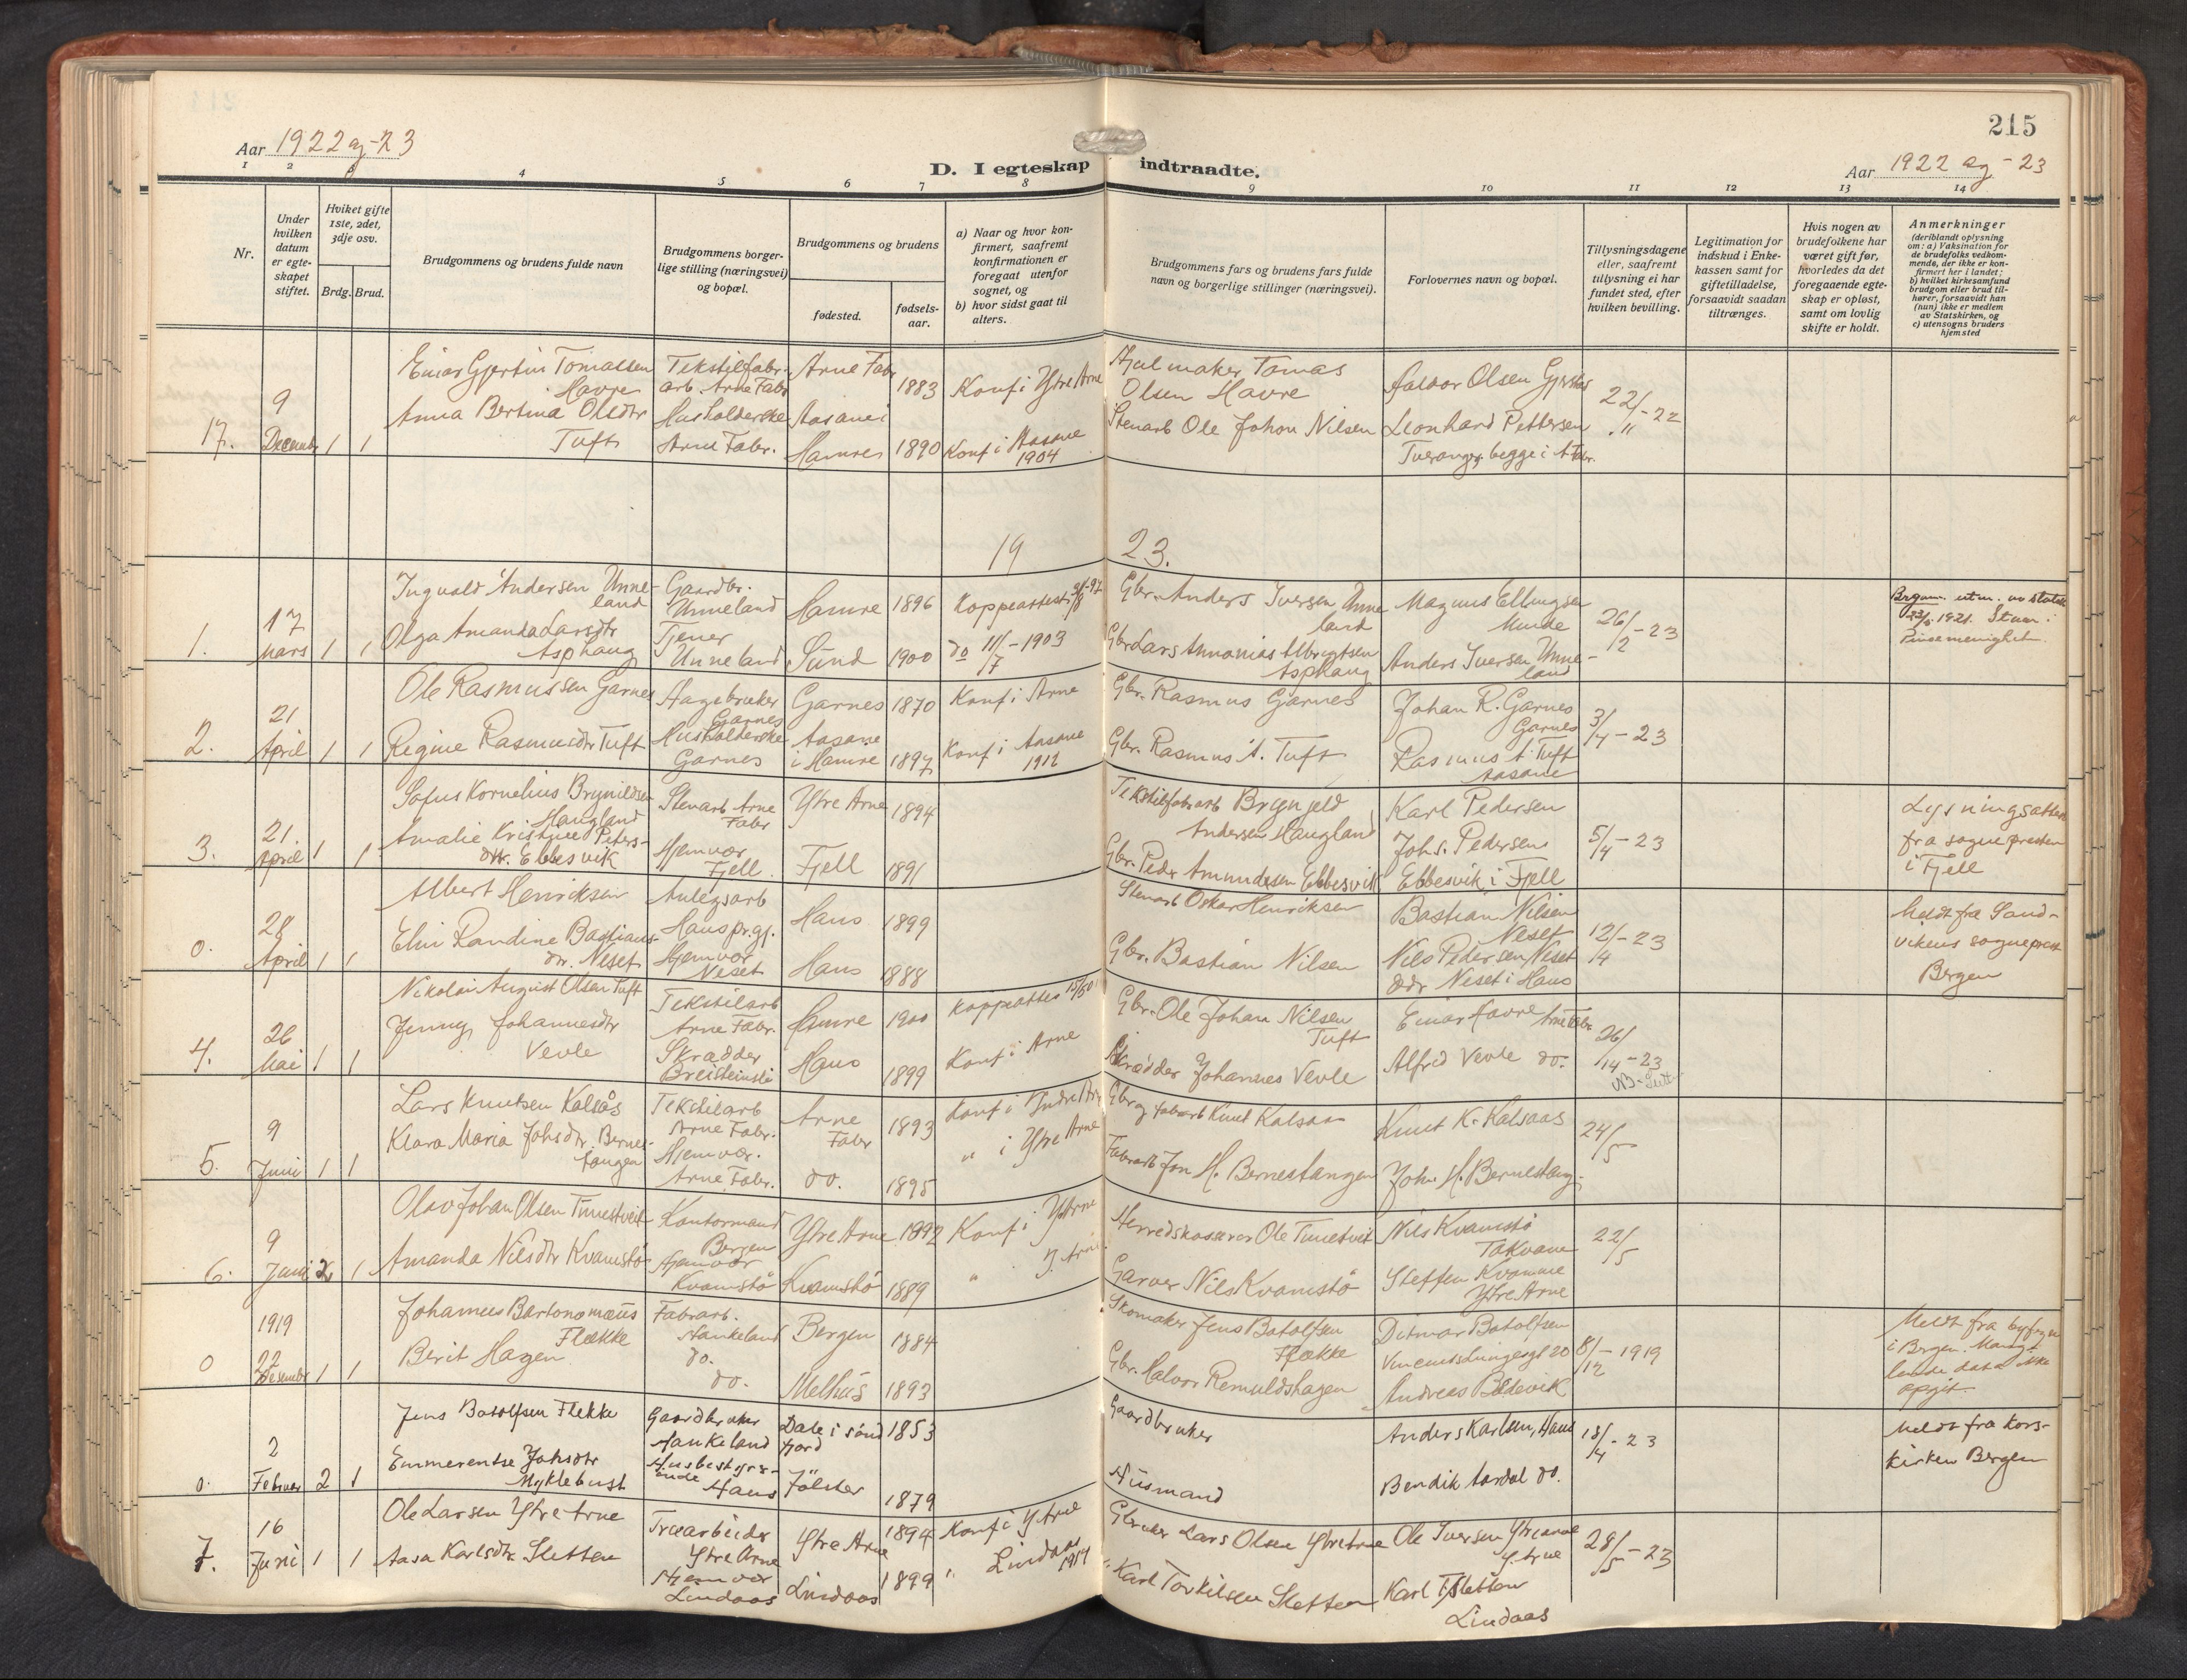 215
Aar 1922 og -23
D. I egteskap indtraadte.
Aar 1922 og -23
1 2 3 4 5 6 7 8 9 10 11 12 13 14
Nr.
Under
hvilken
datum
er egte-
skapet
stiftet.
Hviket gifte
1ste, 2det,
3dje osv.
Brdg. Brud.
Brudgommens og brudens fulde navn
Brudgommens borger-
lige stilling (næringsvei)
og bopæl.
Brudgommens og brudens
fødested.
fødsels-
aar.
a) Naar og hvor kon-
firmert, saafremt
konfirmationen er
foregaat utenfor
sognet, og
b) hvor sidst gaat til
alters.
Brudgommens fars og brudens fars fulde
navn og borgerlige stillinger (næringsvei).
Forlovernes navn og bopæl.
Tillysningsdagene
eller, saafremt
tillysning ei har
fundet sted, efter
hvilken bevilling.
Legitimation for
indskud i Enke-
kassen samt for
giftetilladelse,
forsaavidt saadan
tiltrænges.
Hvis nogen av
brudefolkene har
været gift før,
hvorledes da det
foregaaende egte-
skap er opløst,
samt om lovlig
skifte er holdt.
Anmerkninger
(deriblandt oplysning
om: a) Vaksination for
de brudefolks vedkom-
mende, der ikke er kon-
firmert her i landet;
b) hvilket kirkesamfund
brudgom eller brud til-
hører, forsaavidt han
(hun) ikke er medlem
av Statskirken, og
c) utensogns bruders
hjemsted
17. 9 December 1 1
Einar Gjertin Tomassen
Havre
Anna Bertina Olsdtr
Tuft
Tekstilfabr.
arb. Arne Fabr
Husholderske
Arne Fabr.
Arne Fabr 1883
Aasane i
Hamre 1890
Konf i Ytre Arne
Konf i Aasane
1904
Hjulmaker Tomas
Olsen Havre
Stenarb Ole Johan Nilsen
Halvor Olsen
Leonhard Pettersen
Tveranger begge i A Fabr.
22/11 -22
1923.
1. 17 Mars 1 1
Ingvald Andersen Unne-
land
Olga Amanda Larsdtr
Asphaug
Gaardbr.
Unneland
Tjener
Unneland
Hamre 1896
Sund 1900
Koppeattest 31/8-97
do 11/7-1903
Gbr. Anders Iversen Unne
land
Gbr Lars Annanias Albrigtsen
Asphaug
Magnus Ellingsen
Munde
Anders Iversen Unne-
land
26/2 -23
Brgom. utm. av statsk
1921. Staar i
Pinsemenighet.
2. 21 April 1 1
Ole Rasmussen Garnes
Regine Rasmusdtr Tuft
Aagebruker
Garnes
Husholderske
Garnes
Garnes 1870
Aasane
i Hamre 1897
Konf i Arne
Konf i Aasane
1912
Gbr. Rasmus Garnes
Gbr. Rasmus A. Tuft
Johan R. Garnes
Garnes
Rasmus A. Tuft
Aasane
3/4 -23
3. 21. April 1 1
Sofus Kornelius Brynildsen
Haugland
Amalie Kristine Peters-
dtr. Ebbesvik
Stenarb Arne
Fabr
Hjemvær
Fjell
Ytre Arne 1894
Fjell 1891
Tekstilfabrarb Brynjeld
Andersen Haugland
Gbr. Peder Amundsen Ebbesvik
Karl Pedersen
Johs. Pedersen
Ebbesvik i Fjell
5/4 -23
Lysningsattest
fra sognepresten
i Fjell
0. 28 April 1 1
Albert Henriksen
Elin Randine Bastians-
dtr. Neset
Anlegsarb
Haus pr.gj.
Hjemvær
Neset
Haus 1899
Haus 1888
Stenarb Oskar Henriksen
Gbr. Bastian Nilsen
Bastian Nilsen
Neset
Nils Pedersen Neset
Neset i Haus
12/4 -23
Meldt fra Sand-
vikens sogneprest
Bergen
4. 26 Mai 1 1
Nikolai August Olsen Tuft
Jenny Johannesdtr
Vevle
Tekstilarb
Arne Fabr.
Skrædder
Breisteinsli
Hamre 1900
Haus 1899
Koppeattes
Konf i Arne
Gbr. Ole Johan Nilsen
Tuft
Skrædder Johannes Vevle
Einar Havre Arne Fabr.
Alfred Vevle do.
26/4 -23
5. 9 Juni 1 1
Lars Knutsen Kalsås
Klara Maria Johsdtr. Bernes-
tangen
Tekstilarb
Arne Fabr.
Hjemvær.
Arne Fabr.
Arne
Fabr 1893
do. 1895
Konf i Indre Arne
" i Ytre Arne
Gbr og fabarb Knut Kalsaas
Fabrarb Jon H. Bernestangen
Knut K. Kalsaas
John. H. Bernestang.
24/5
6. 9 Juni 2 1
Olav Johan Olsen Tunestveit
Amanda Nilsdtr Kvamstø
Kontormand
Bergen
Hjemvær
Kvamstø
Ytre Arne 1892
Kvamstø 1889
Konf i Y Arne
" Y. Arne
Herredskasserer Ole Tunestveit
Garver Nils Kvamstø
Nils Kvamstø
Takvam
Steffen Kvamme
Ytre Arne
22/5
0 1919 22 Desember 1 1
Johannes Bartonomæus
Flække
Berit Hagen
Fabrarb.
Haukeland
do.
do.
Bergen 1884
Melhus 1893
Skomaker Jens Botolfsen
Flække
Gbr. Halvor Remuldshagen
Ditmar Botolfsen
Vincentslungesgt 20
Andreas Bødevik
8/12 -1919
Meldt fra byfogd
i Bergen. Mang-
lende data ikke
opgit.
0. 2 Februar 2 1
Jens Botolfsen Flekke
Emmerentse Johsdtr
Myklebust
Gaardbruker
Haukeland
Husbestyr-
ende
Haus
Dale i Sønd
fjord 1853
Jølster 1879
Gaardbruker
Husmand
Anders Karlsen, Haus
Bendik Aardal do.
18/4 -23
Meldt fra Kors-
kirken Bergen
7. 16 Juni 1 1
Ole Larsen Ytre Arne
Aasa Karlsdtr Sletten
Træarbeider
Ytre Arne
Hjemvær
Lindaas
Ytre Arne 1894
Lindaas 1899
Konf i Y Arne
" Lindaas
1914
Gbruker Lars Olsen Ytre Arne
" Karl Torkilsen Sletten
Ole Iversen Ytre Arne
Y. Arne
Karl T Sletten
Lindaas
28/5 -23